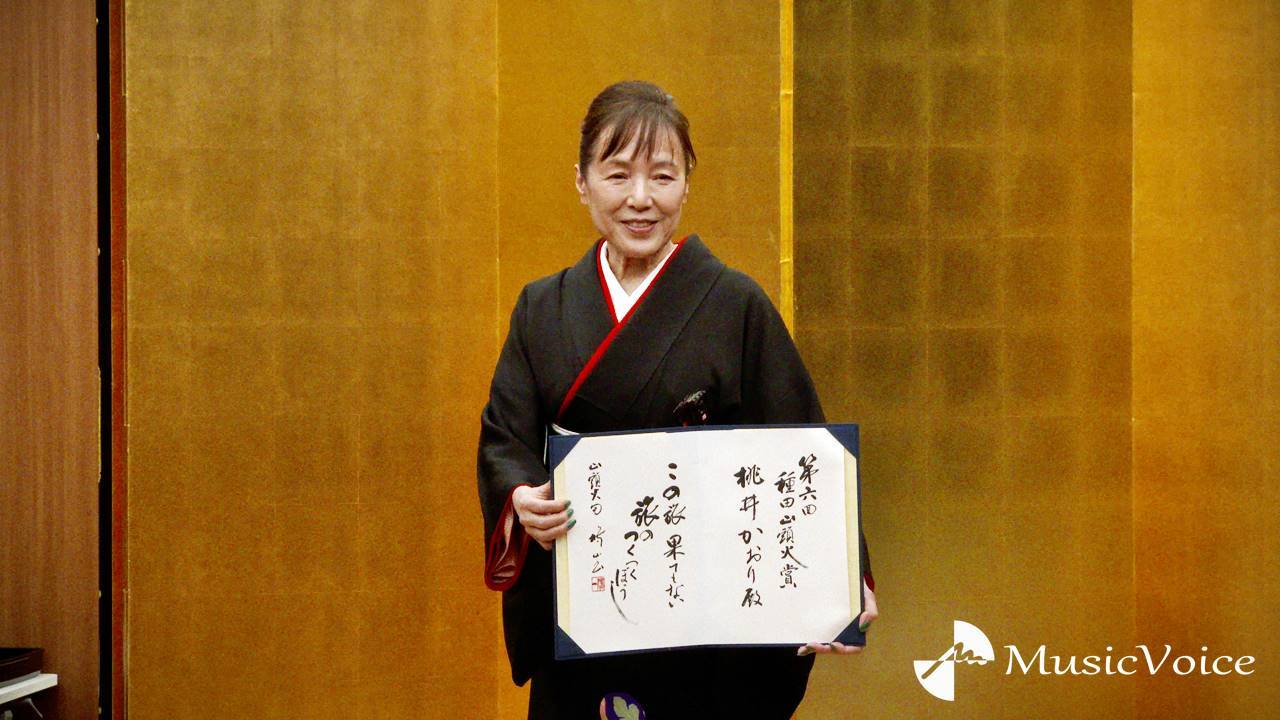 第六回
種田山頭火賞
桃井かおり殿
この旅果てもない
旅の
つくつくぼうし
山頭火句
MusicVoice